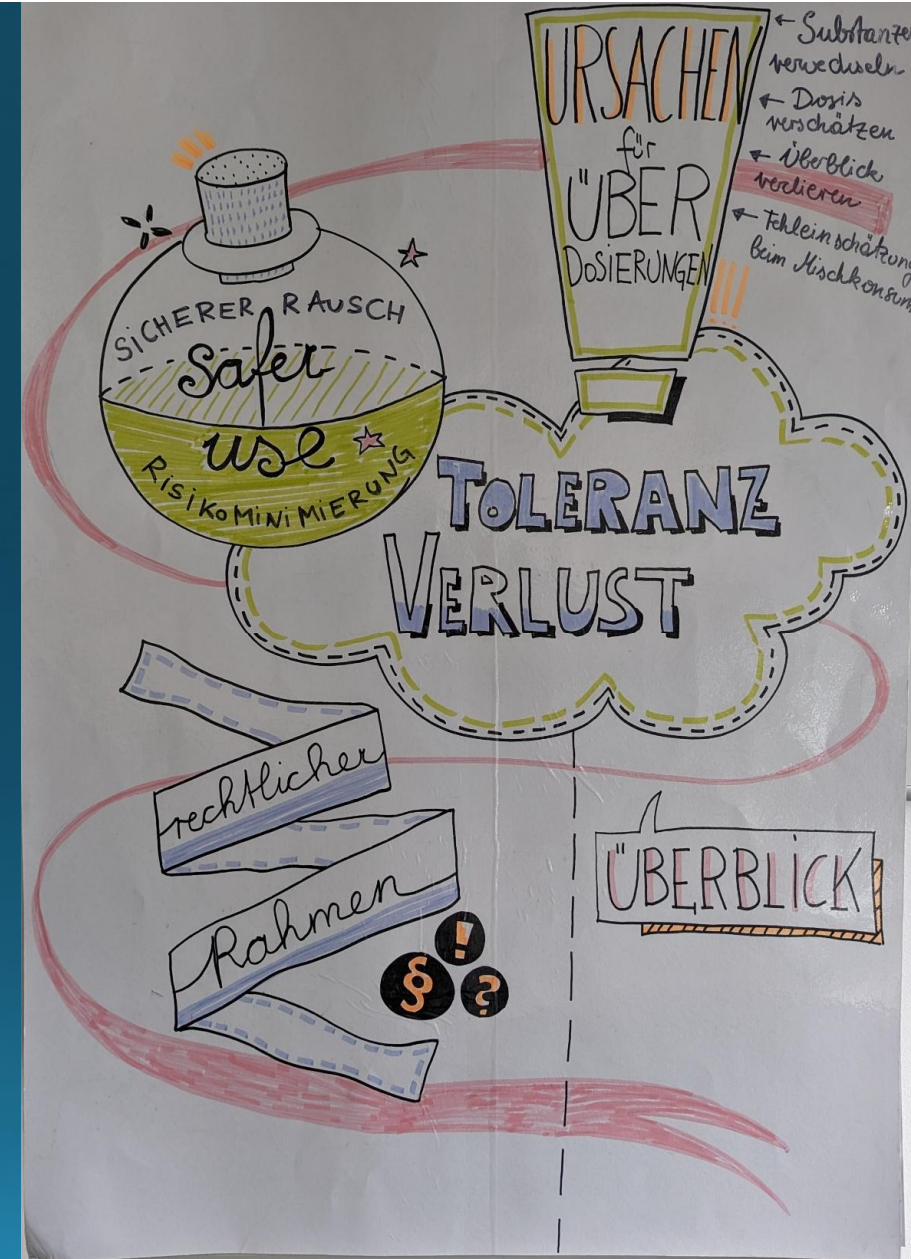 URSACHEN
für
ÜBER
DOSIERUNGEN
← Substanze
verwechseln
← Dosis
verschätzen
← Überblick
verlieren
← Fehleinschätzung
beim Mischkonsum
SICHERER RAUSCH
Safer
use
RISIKOMINIMIERUNG
TOLERANZ
VERLUST
rechtlicher
Rahmen
§ ! ?
ÜBERBLICK